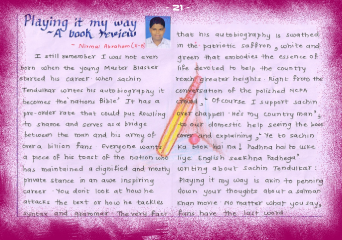 21
Playing it my way
-A book review
- Nirmal Abraham (X-B)
I still remember I was not even
born when the young Master Blaster
started his career when Sachin
Tendulkar writes his autobiography it
becomes the nations Bible' It has a
pre-order rate that could put Rowling
to shame and serves as a bridge
between the town and his army of
over a billion fans Everyone wants
a piece of his toast of the nation who
has maintained a dignified and mostly
private stance in an awe inspiring
career You don't look at how he
attacks the text or how he tackles
syntax and grammar The very fact
that his autobiography is swathed
in the patriotic saffron, white and
green that embodies the essence of
life devoted to help the country
reach greater heights. Right from the
of the polished
Of course I support Sachin
chappell He's my country man",
to our domestic help seeing the book
cover and explaining, "Ye to Sachin
Ka book hai na! Padhna hai to uske
liye English seekhna Padhega"
Writing about Sachin Tendulkar:
Playing it my way is akin to penning
down your thoughts about a Salman
Khan movie No matter what you say,
fans have the last word